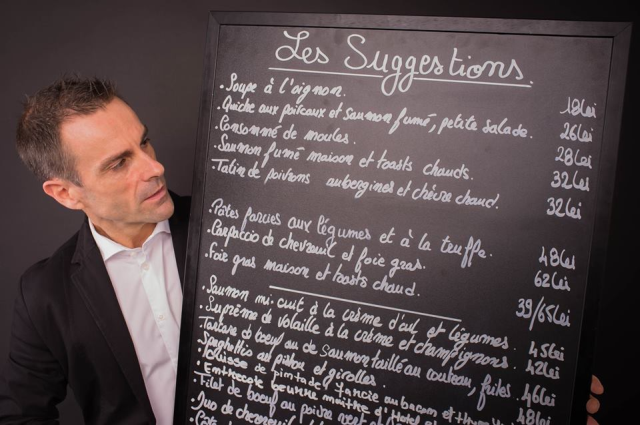 Les Suggestions.
.Soupe à l'oignon. 18Lei
.Quiche aux poireaux et saumon fumé, petite salade. 26Lei
.Consommé de moules. 28Lei
.Saumon fumé maison et toasts chauds. 32Lei
.Tatin de poivrons aubergines et chèvre chaud. 32Lei
.Pâtes farcies aux légumes et à la truffe. 48Lei
.Carpaccio de chevreuil et foie gras. 62Lei
.Foie gras maison et toasts chaud. 39/65Lei
.Saumon mi-cuit à la crème d'ail et légumes. 45Lei
.Suprême de volaille à la crème et champignons. 42Lei
.Tartare de boeuf ou de saumon taillé au couteau, frites. 46Lei
.Spaghettis au pistou et girolles. 48Lei
de pintade farcie au bacon et
.Entrecôte beurre maître d'Hôtel et
.Filet de boeuf au poivre vert et
.Duo de chevreuil